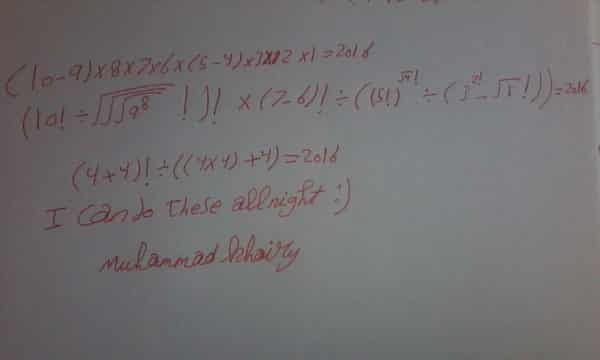 (10-9)×8×7×6×(5-4)×3×2×1=2016
(10!÷√√√9⁸!)!×(7-6)!÷((5!)^√4!÷(3²!-√1!))=2016
(4+4)!÷((4×4)+4)=2016
I can do these all night :)
Muhammad khairy